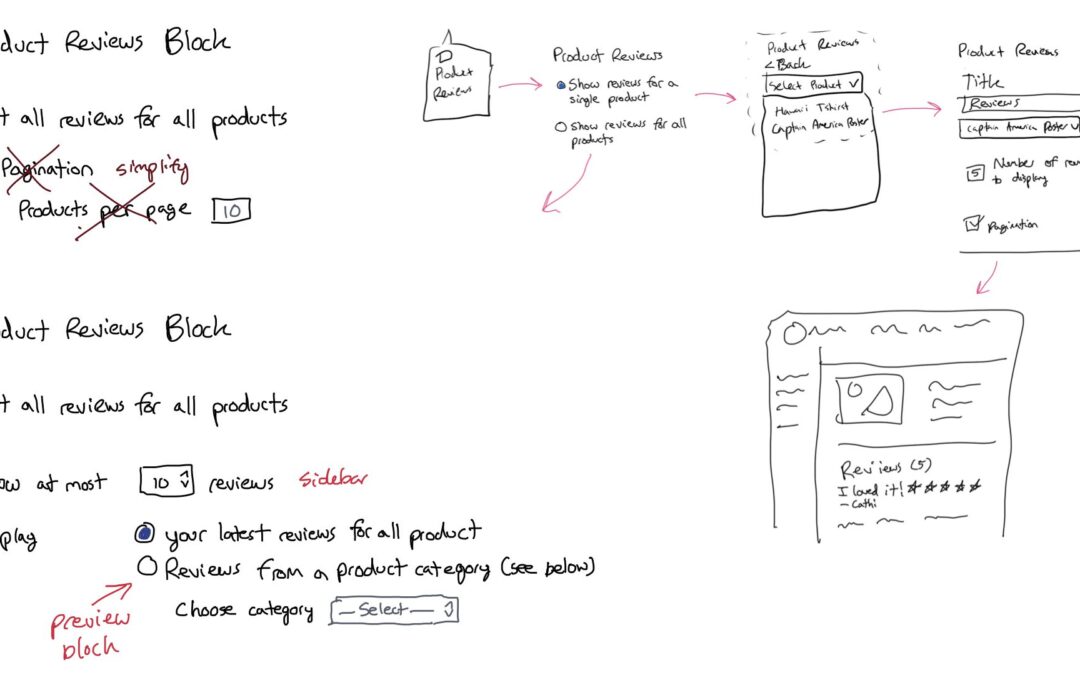 duct Reviews Block
t all reviews for all products
Pagination simplify
Products per page 10
duct Reviews Block
t all reviews for all products
ow at most 10 reviews sidebar
play your latest reviews for all product
Reviews from a product category (see below)
Choose category —Select—
preview
block
Product
Reviews
Product Reviews
Show reviews for a
single product
Show reviews for all
products
Product Reviews
<Back
Select Product
Hawaii Tshirt
Captain America Poster
Product Reviews
Title
Reviews
Captain America Poster
5 Number of rev
to display
pagination
Reviews (5)
I loved it! ★★★★★
—Cathi